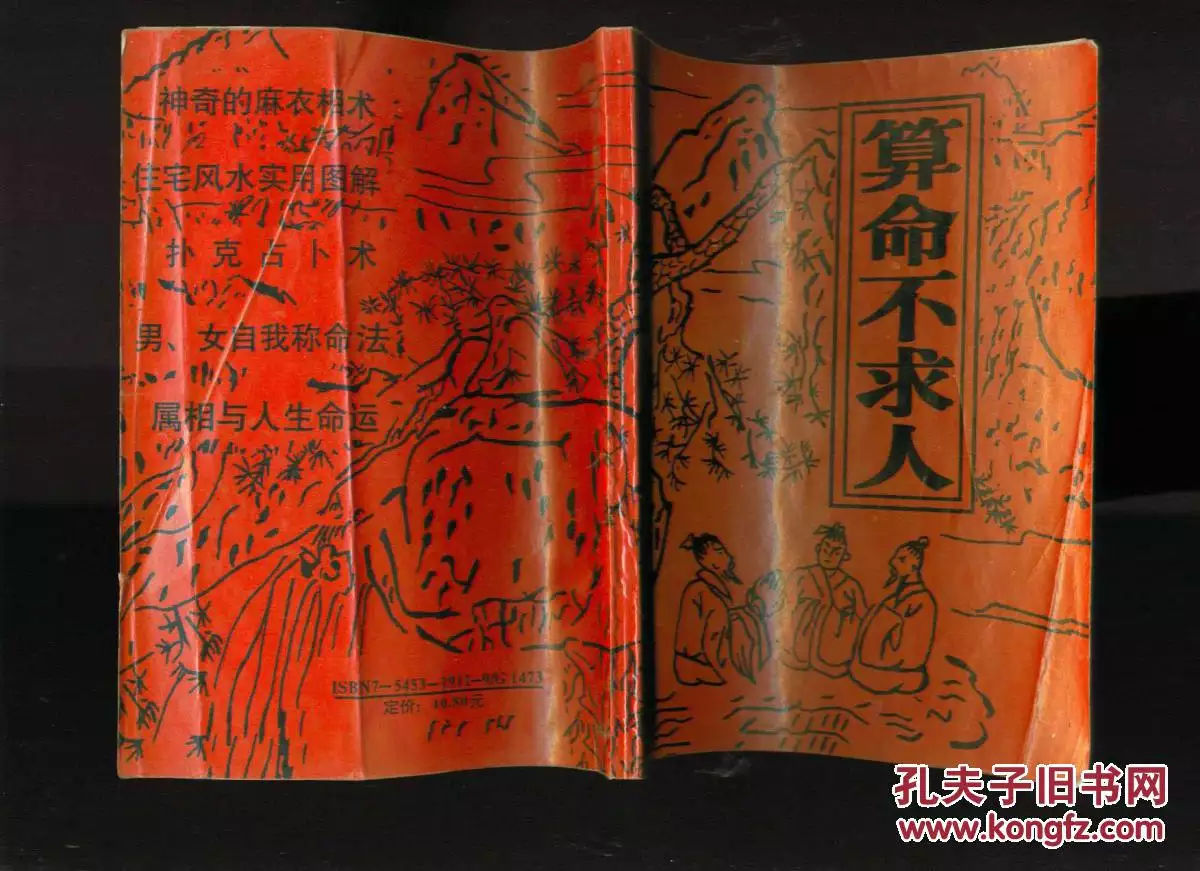 算命不求人
神奇的麻衣相术
住宅风水实用图解
扑克占卜术
男、女自我称命法
属相与人生命运
ISBN7—5453—
定价: 10.80元
孔夫子旧书网
www.kongfz.com